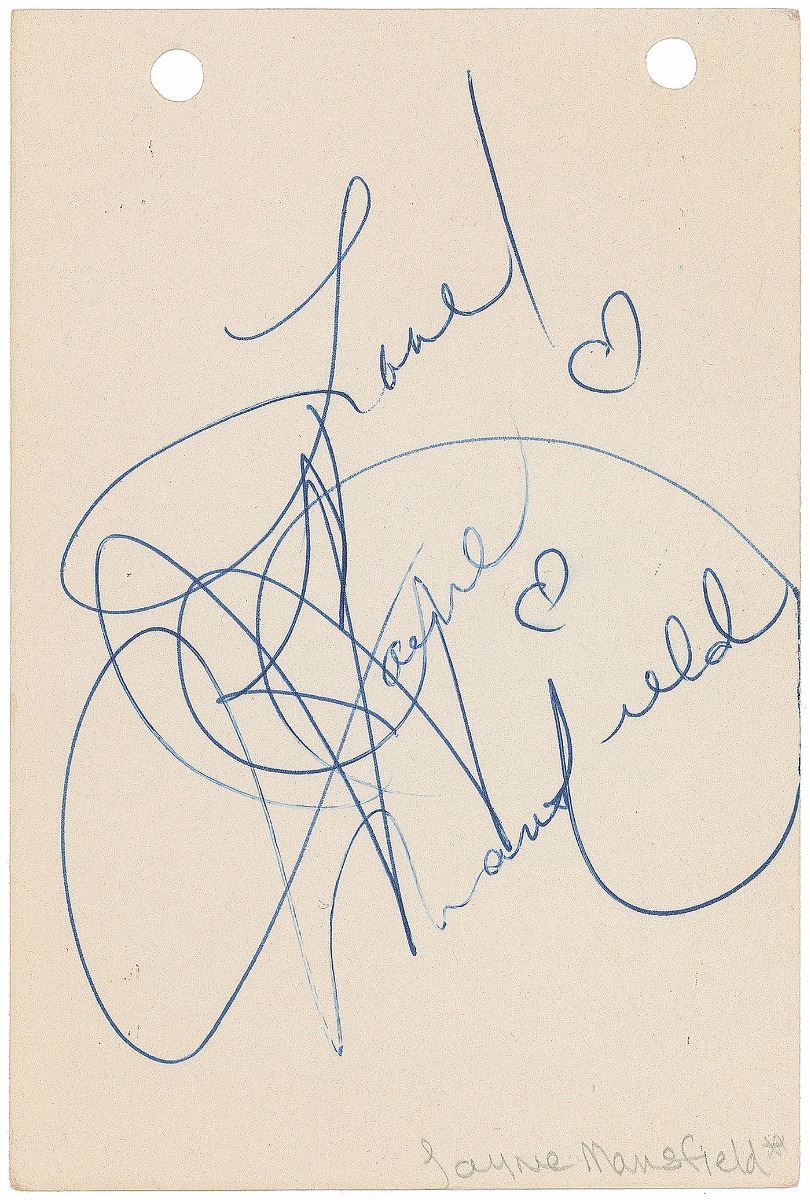 Love!
Jayne
Mansfield
Jayne Mansfield*